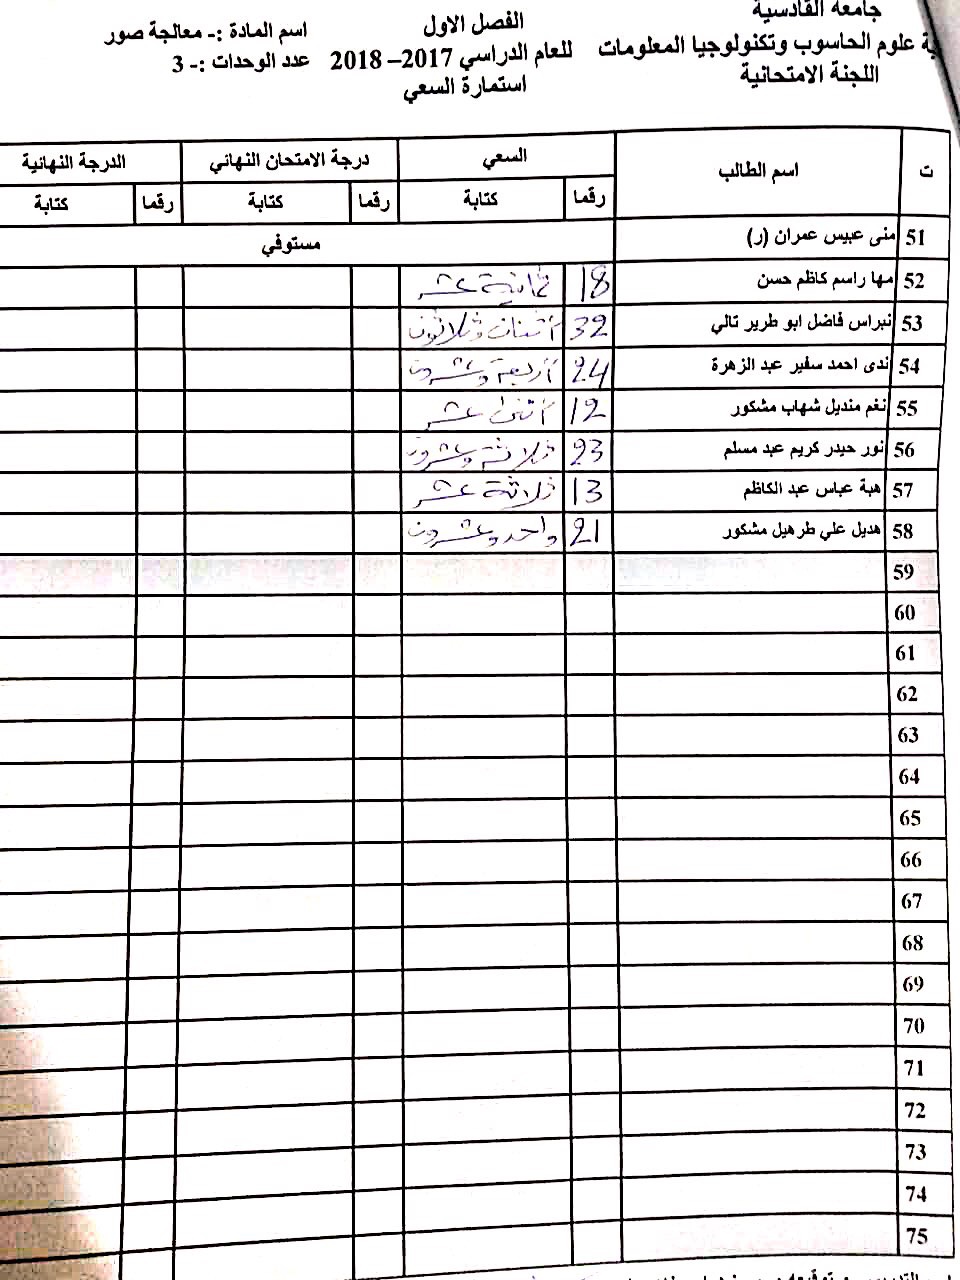 جامعة القادسية
ية علوم الحاسوب وتكنولوجيا المعلومات
اللجنة الامتحانية
الفصل الاول
للعام الدراسي 2017– 2018
استمارة السعي
اسم المادة :- معالجة صور
عدد الوحدات :- 3
ت اسم الطالب السعي درجة الامتحان النهائي الدرجة النهائية
رقما كتابة رقما كتابة رقما كتابة
51 منى عبيس عمران (ر) مستوفي
52 مها راسم كاظم حسن 18 ثمانية عشر
53 نبراس فاضل ابو طرير تالي 32 أثنان وثلاثون
54 ندى احمد سفير عبد الزهرة 24 أربعة وعشرون
55 نغم منديل شهاب مشكور 12 أثنى عشر
56 نور حيدر كريم عبد مسلم 23 ثلاثة وعشرون
57 هبة عباس عبد الكاظم 13 ثلاثة عشر
58 هديل علي طرهيل مشكور 21 واحد وعشرون
59
60
61
62
63
64
65
66
67
68
69
70
71
72
73
74
75